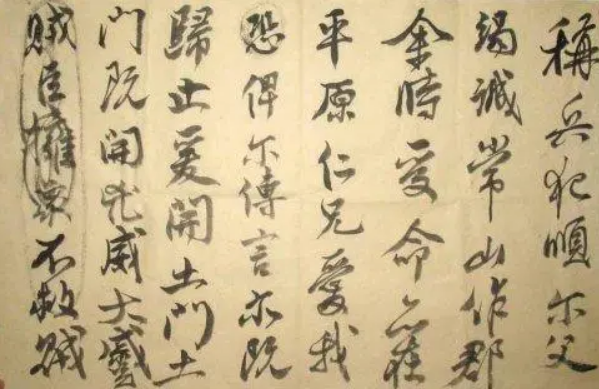 稱兵犯順尔父
竭誠常山作郡
余時受命亦在
平原仁兄愛我
恐俾尔傳言尔既
歸止爰開土門土
門既開兇威大蹙
賊臣擁衆不救賊